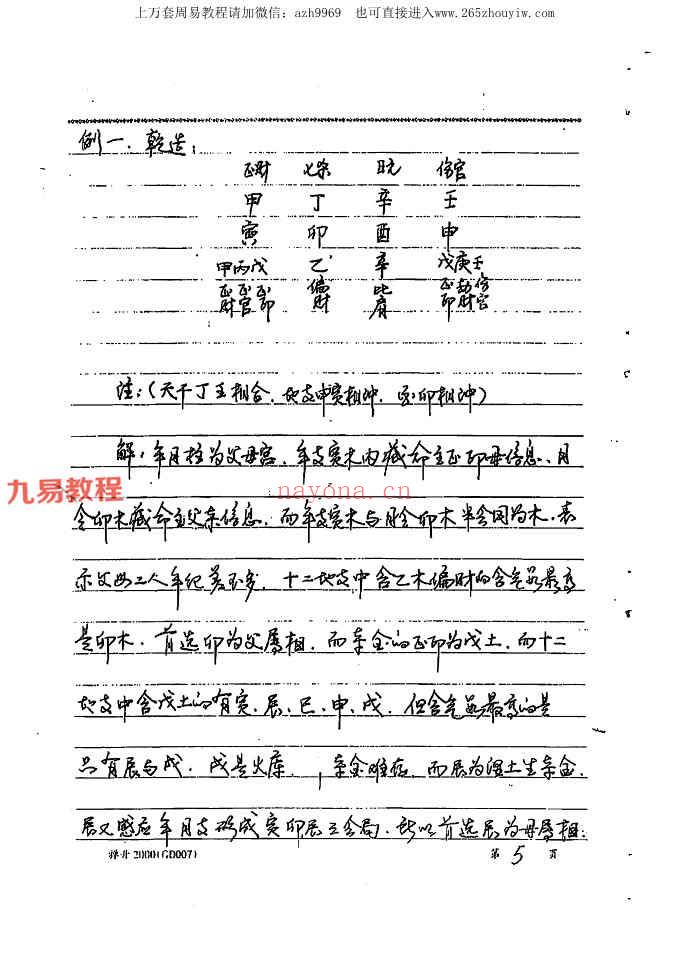 上万套周易教程请加微信：azh9969 也可直接进入www.265zhouyiw.com
例一、乾造：
正财 七杀 日元 伤官
甲 丁 辛 壬
寅 卯 酉 申
甲丙戊 乙 辛 戊庚壬
正正正 偏 比 正劫伤
财官印 财 肩 印财官
注：(天干丁壬相合，地支申寅相冲，酉卯相冲)
解：年月柱为父母宫，年支寅木内藏命主正印母信息、月
九易教程
nayona.cn
令卯木藏命主父亲信息，而年支寅木与月令卯木半会同为木，表
示父母二人年纪差不多，十二地支中含乙木偏财的含气数最高
是卯木，首选卯为父属相，而辛金的正印为戊土，而十二
地支中含戊土的有寅、辰、巳、申、戌，但含气数最高的是
只有辰与戌，戌是火库，辛金难存，而辰为湿土生辛金，
辰又感应年月支构成寅卯辰三会局，所以首选辰为母属相；
2000(GD007)
第 5 页